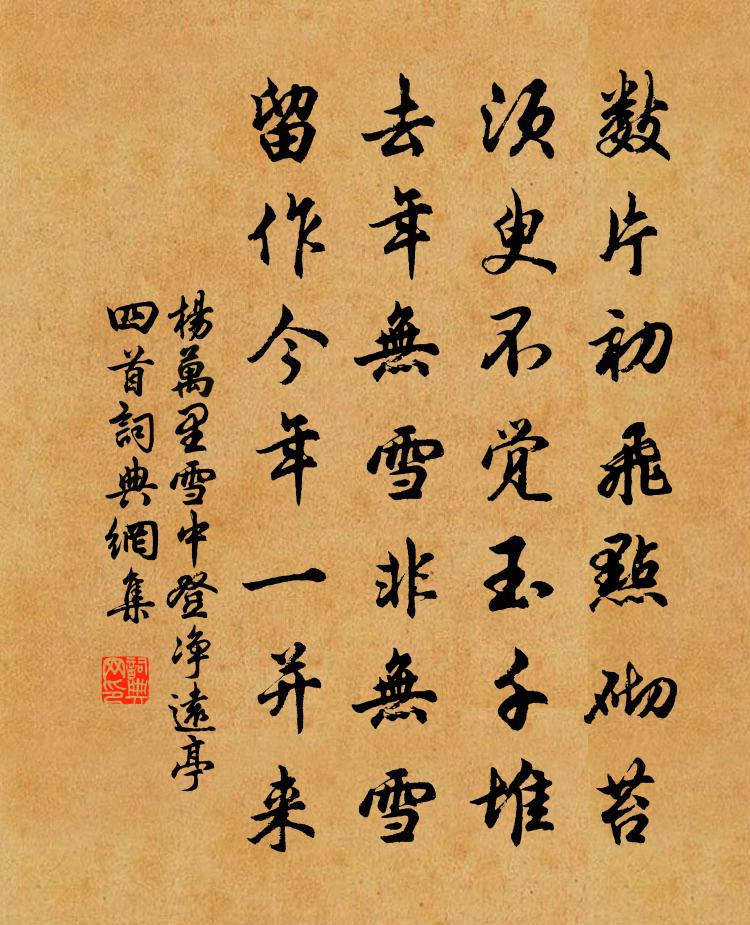 数片初飛點砌苔
須臾不覚玉千堆
去年無雪非無雪
留作今年一并来
楊萬里雪中登净遠亭
四首詞典網集
詞典
网印